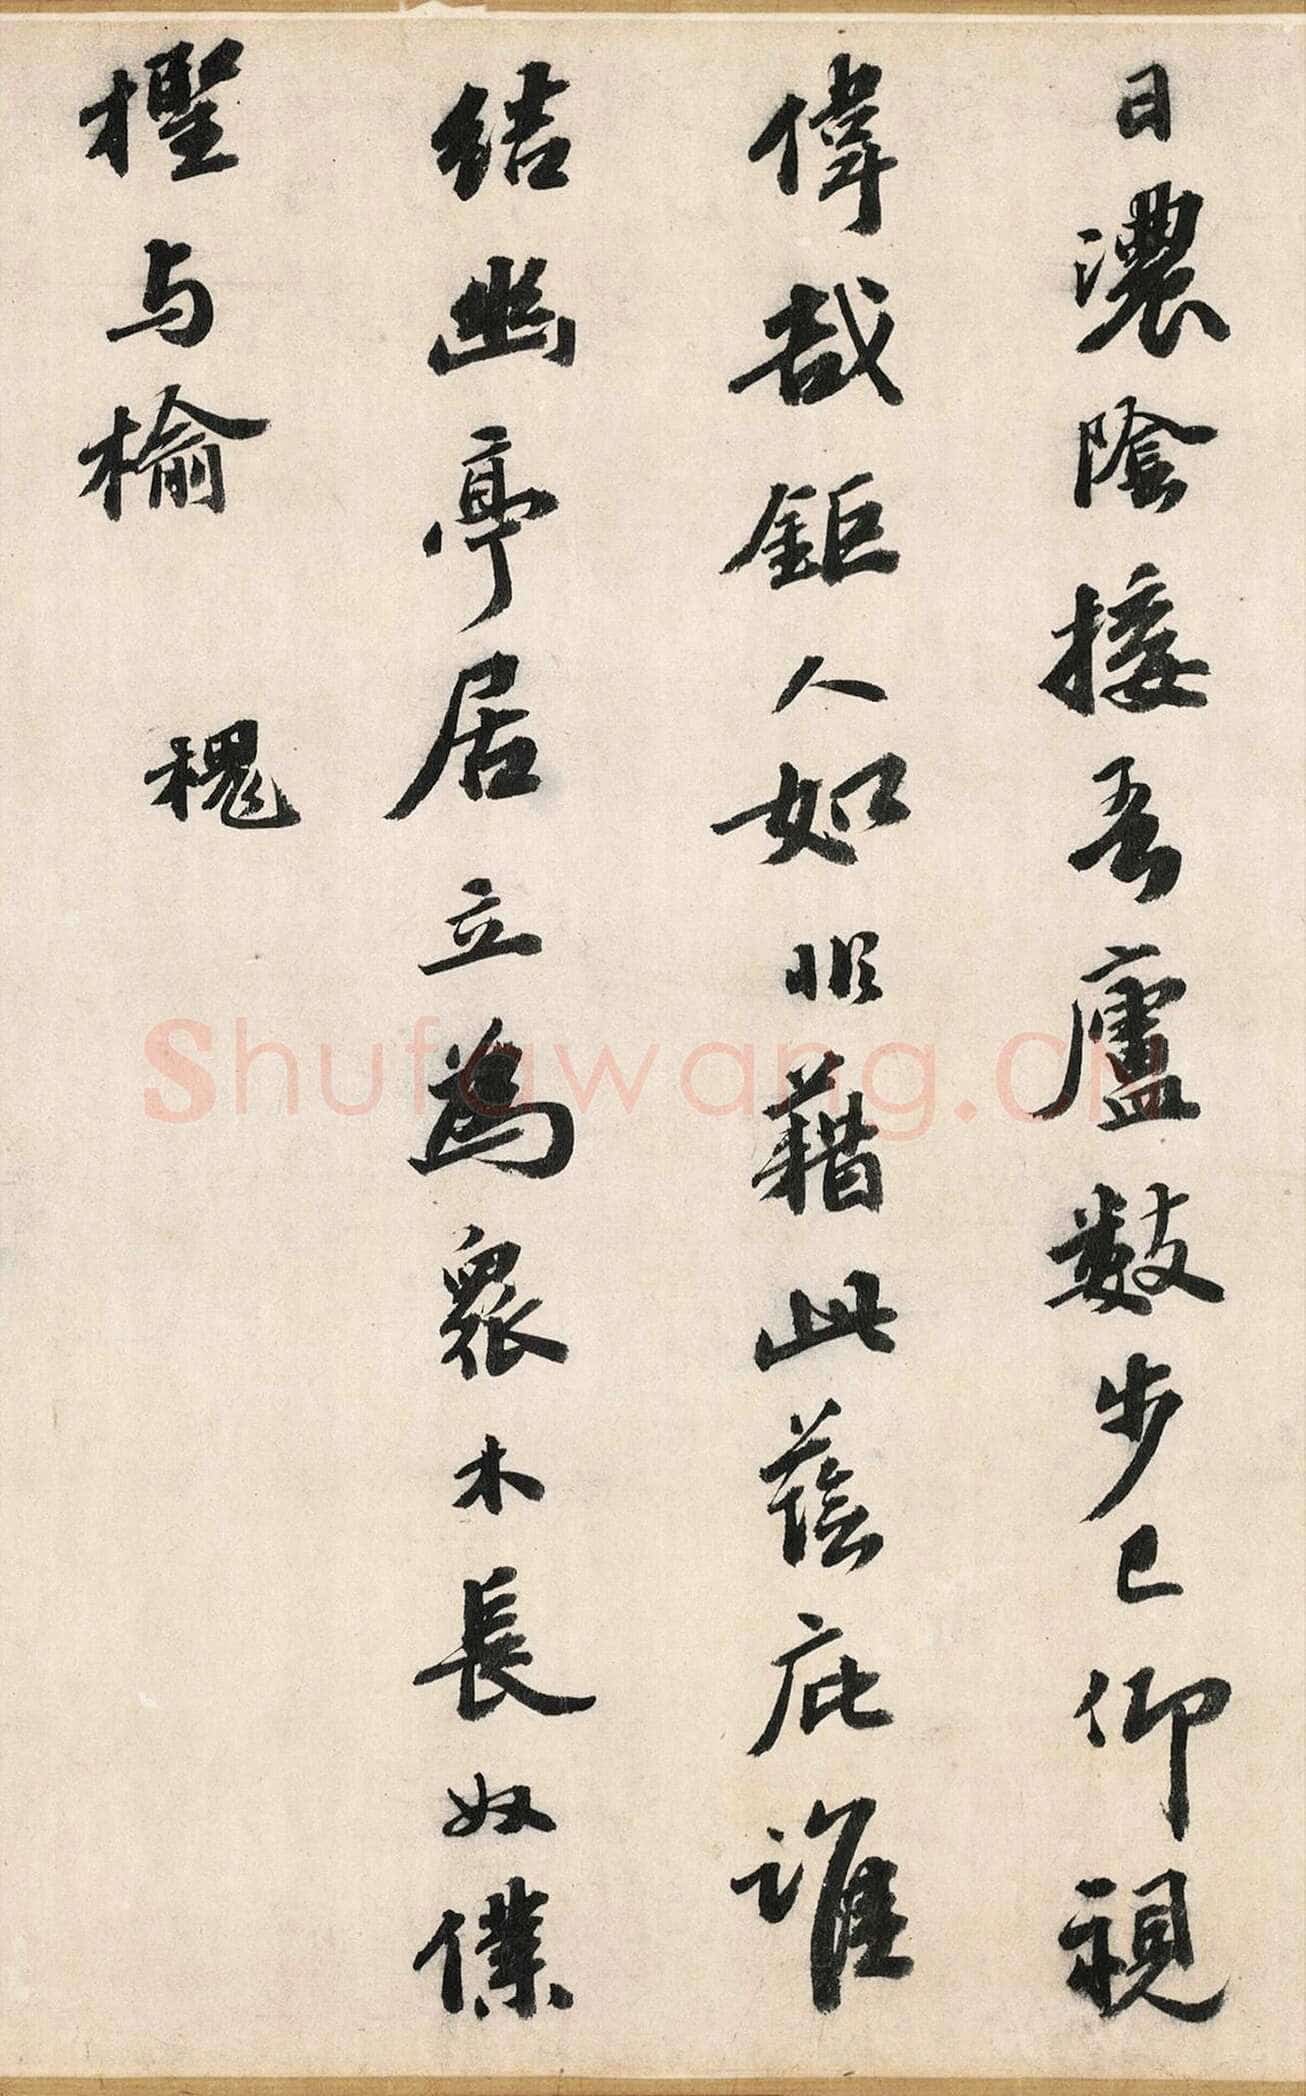 日濃陰接吾廬數步已仰視
偉哉鉅人如非藉此蔭庇誰
結幽亭居立為眾木長奴僕
檉与榆 槐
Shufawang.CN